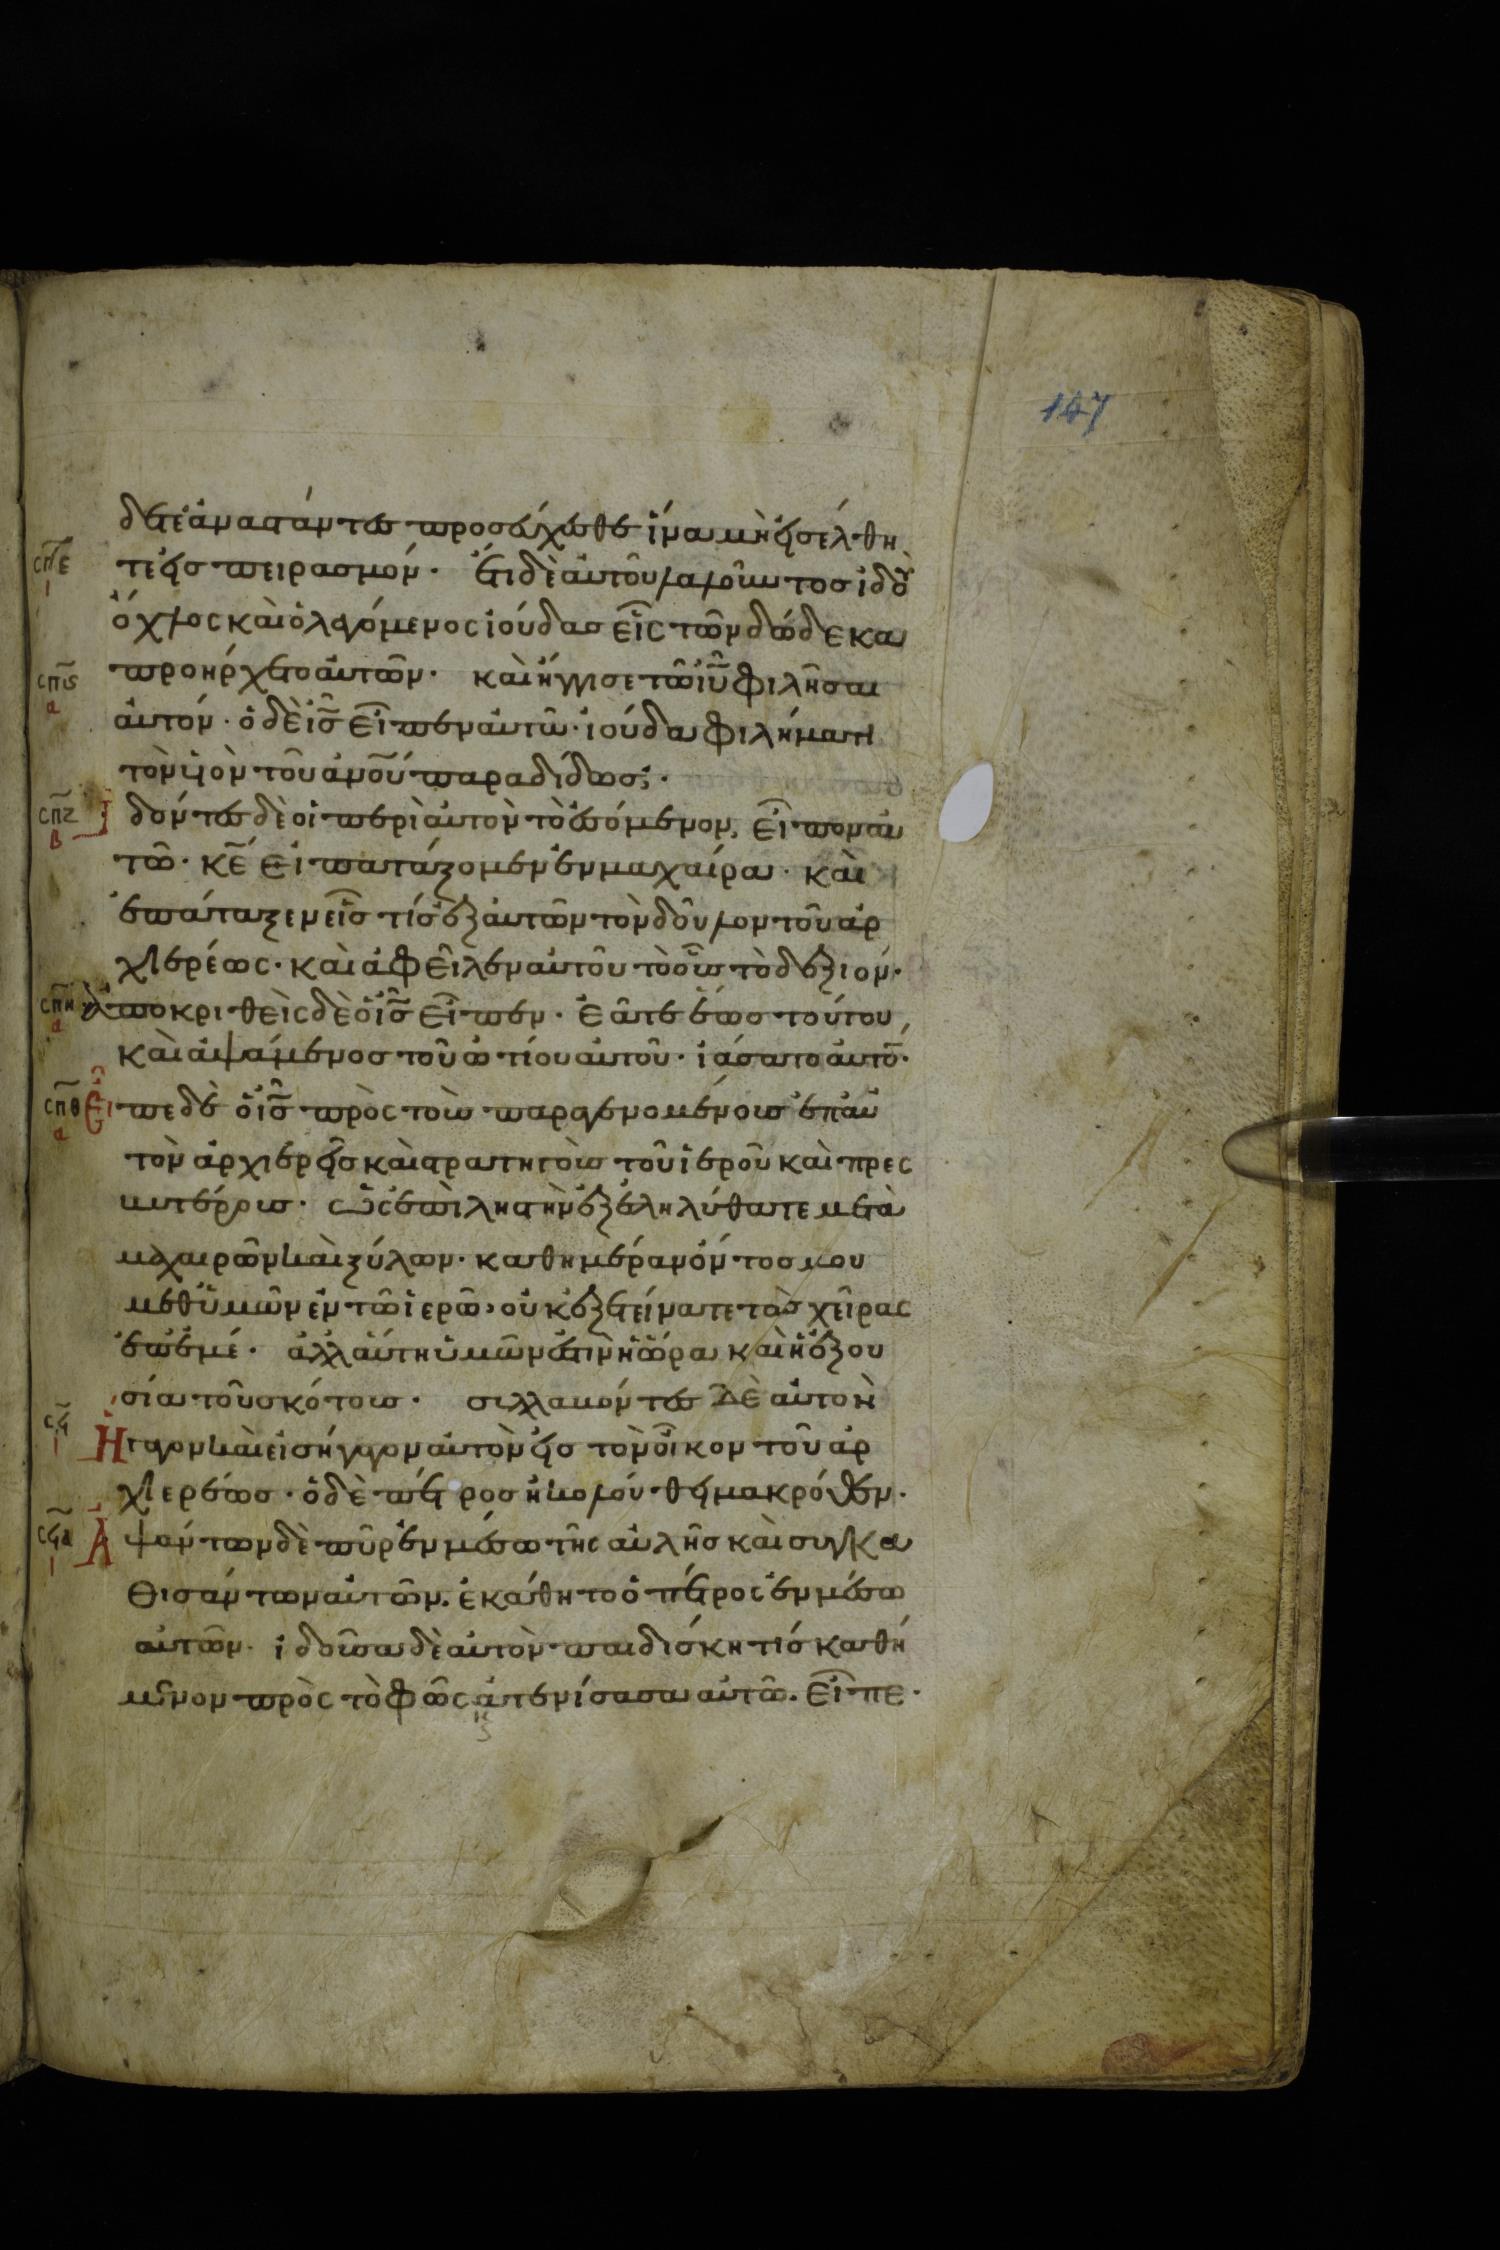 147
δετε ἀναστάντες προσεύχεσθε ἵνα μὴ εἰσέλθη
σπε
ι
τε εἰς πειρασμόν· ἔτι δὲ αὐτοῦ λαλοῦντος ἰδοὺ
ὄχλος καὶ ὁ λεγόμενος ἰούδας εἷς τῶν δώδεκα
σπς
α
προήρχετο αὐτῶν· καὶ ἤγγισε τῶ ἰῦ φιλῆσαι
αὐτόν· ὁ δὲ ἰς εἶπεν αὐτῶ· ἰούδα φιλήματι
τὸν υἱὸν τοῦ ἀνου παραδίδως;·
σπζ
β
Ἰδόντες δὲ οἱ περὶ αὐτὸν τὸ ἐσόμενον, εἶπον αὐ
τῶ· κε εἰ πατάξομεν ἐν μαχαίρα· καὶ
ἐπάταξεν εἷς τίς ἐξ αὐτῶν τὸν δοῦλον τοῦ ἀρ
χιερέως· καὶ ἀφεῖλεν αὐτοῦ τὸ οὖς τὸ δεξιόν·
σπη
α
ἀποκριθεὶς δὲ ὁ ἰς εἶπεν· ἐᾶτε ἕως τούτου,
καὶ ἁψάμενος τοῦ ὠτίου αὐτοῦ· ἰάσατο αὐτό·
σπθ
α
Εἶπε δὲ ὁ ἰς πρὸς τοὺς παραγενομένους ἐπ αὐ
τὸν ἀρχιερεῖς καὶ στρατηγοὺς τοῦ ἱεροῦ καὶ πρες
βυτέρους· ὡς ἐπὶ ληστὴν ἐξεληλύθατε μετὰ
μαχαιρῶν καὶ ξύλων· καθημέραν ὄντος μου
μεθ ὑμῶν ἐν τῶ ἱερῶ, οὐκ ἐξετείνατε τὰς χεῖρας
ἐπ ἐμέ· ἀλλ αὕτη ὑμῶν ἐστὶν ἡ ὥρα καὶ ἡ ἐξου
σία τοῦ σκότους· συλλαβόντες δὲ αὐτὸν
σϟ
ι
Ἤγαγον καὶ εἰσήγαγον αὐτὸν εἰς τὸν οἶκον τοῦ ἀρ
χιερέως· ὁ δὲ πέτρος ἠκολούθει μακρόθεν·
σϟα
ι
Ἁψάντων δὲ πῦρ ἐν μέσω τῆς αὐλῆς καὶ συγκα
θισάντων αὐτῶν. ἐκάθητο ὁ πέτρος ἐν μέσω
αὐτῶν· ἰδοῦσα δὲ αὐτὸν παιδίσκη τίς καθή
μενον πρὸς τὸ φῶς ἀτενίσασα αὐτῶ. εἶπε·